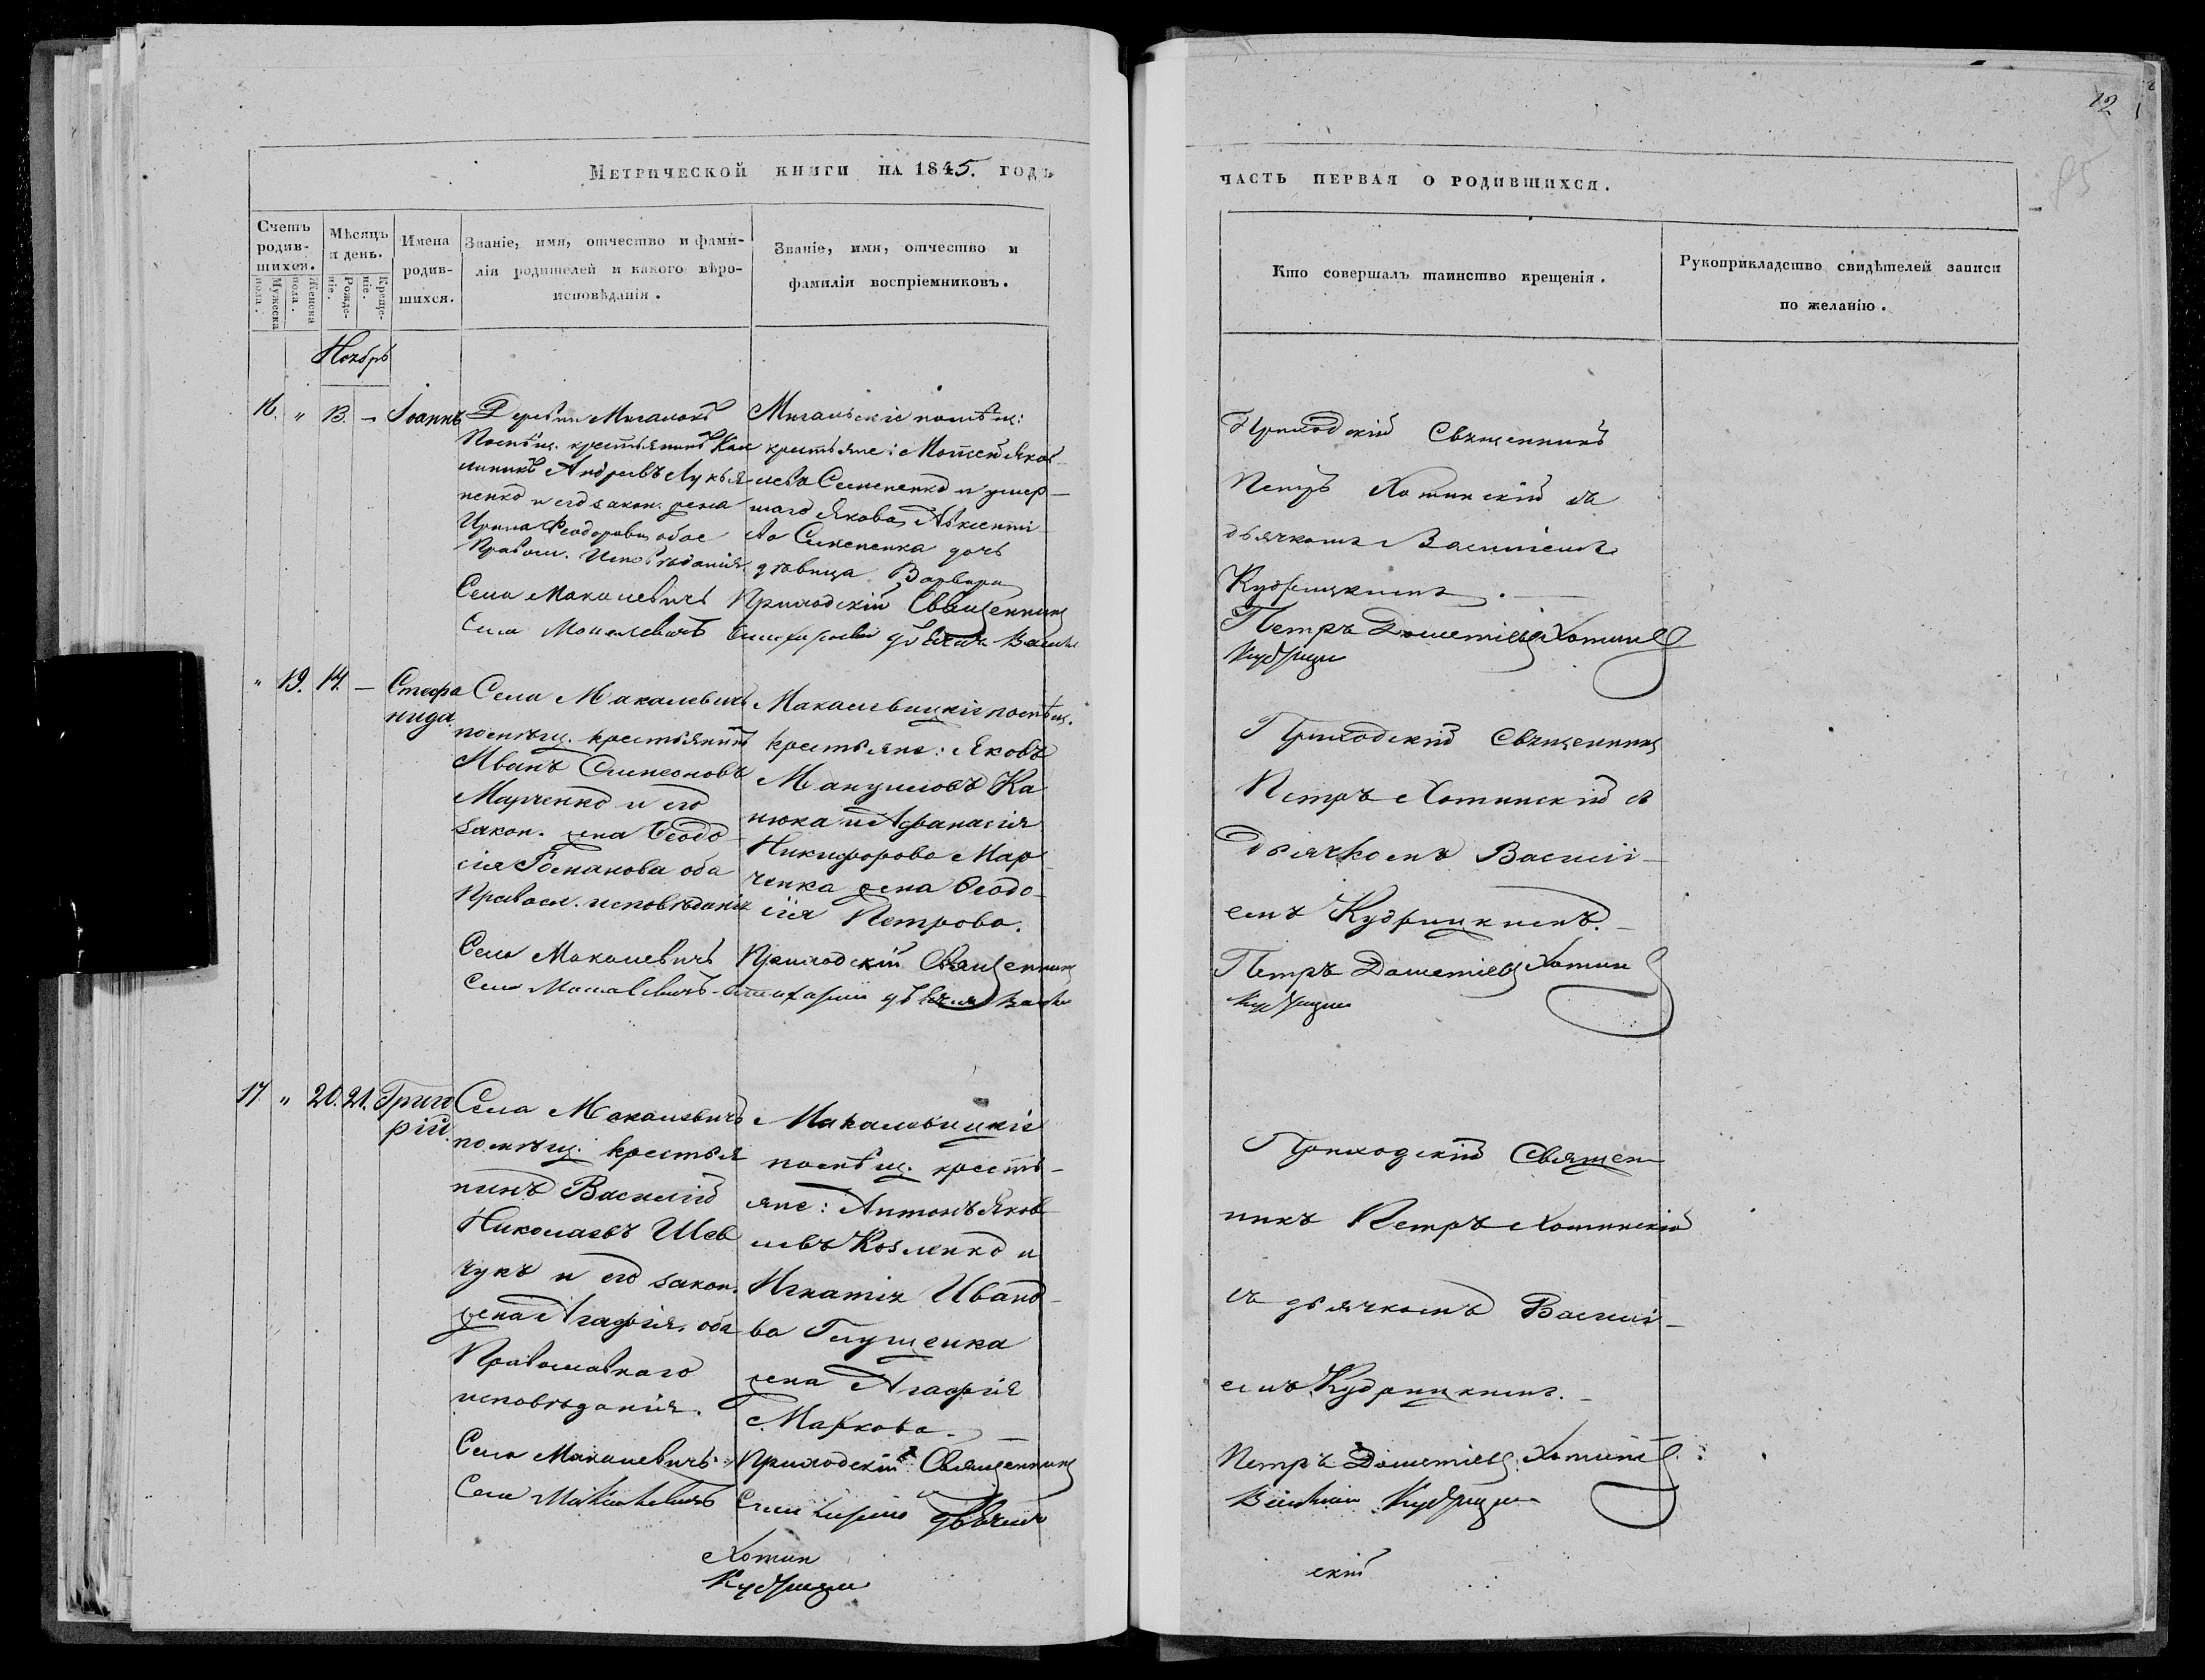 Метрической книги на 1845. годъ
Счетъ родив-шихся.
Мужеска пола.
Женска пола.
Мѣсяцъ и день.
Рожде-ніе.
Креще-ніе.
Имена родив-шихся.
Званіе, имя, отчество и фами-
лія родителей и какого вѣро-
исповѣданія.
Званіе, имя, отчество и
фамилія воспріемниковъ.
Ноябрь
16. " 13. — Іоаннъ
Деревни Мигалокъ
Помѣщ. крестьянинъ Кал
линикъ Андреевъ Лукья
ненко и его закон. жена
Ирина Феодорова обое
Правосл. Исповѣданія.
Мигальскіе помѣщ:
крестьяне: Мотей Яков-
левъ Семененко и умер-
шаго Якова Авксенті
ева Семененка дочь
дѣвица Варвара
Села Макалевичъ Приходскій Священникъ
Села Макалевичъ
" 19. 14. — Стефа
нида.
Села Макалевичъ
помѣщ. крестьянинъ
Иванъ Симеоновъ
Марченко и его
закон. жена Ѳеодо-
сія Романова оба
Правосл. исповѣданія
Макалевицкіе помѣщ.
крестьяне: Яковъ
Мануиловъ Ка
нюка и Афанасія
Никифорова Мар
ченка жена Ѳеодо-
сія Петрова.
Села Макалевичъ Приходскій Священникъ
Села Макалевичъ
17. " 20. 21. Григо
рій.
Села Макалевичъ
помѣщ. крестья
нинъ Василій
Николаевъ Шев
чукъ и его закон.
жена Агафія, оба
Православнаго
исповѣданія.
Макалевицкіе
помѣщ. кресть-
яне: Антонъ Яков
левъ Козленко и
Игнатія Ивано-
ва Глущенка
жена Агафія
Маркова.
Села Макалевичъ Приходскій Священникъ
Села Макалевичъ
Хотин
Кудрицк
12
85
часть первая о родившихся.
Кто совершалъ таинство крещенія.
Рукоприкладство свидѣтелей записи
по желанію.
Приходскій Священникъ
Петръ Хотинскій съ
дьячкомъ Василіемъ
Кудрицкимъ.
Петръ Дометіевъ Хотин
Кудрицк
Приходскій Священникъ
Петръ Хотинскій съ
Дьячкомъ Василі-
емъ Кудрицкимъ.
Петръ Дометіевъ Хотин
Кудрицк
Приходскій Священ
никъ Петръ Хотинскій
съ дьячкомъ Василі-
емъ Кудрицкимъ.
Петръ Дометіевъ Хотин
Кудрицк
скій